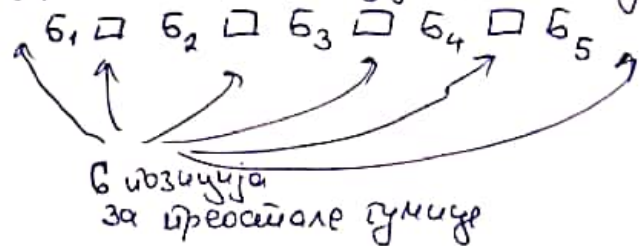 Б₁ □ Б₂ □ Б₃ □ Б₄ □ Б₅
6 позиција
за преостале гумице